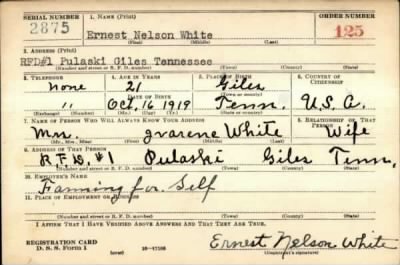 SERIAL NUMBER 1. NAME (Print) ORDER NUMBER
2875 Ernest Nelson White 125
(First) (Middle) (Last)
2. ADDRESS (Print)
RFD#1 Pulaski Giles Tennessee
(Number and street or R. F. D. number) (Town) (County) (State)
3. TELEPHONE 4. AGE IN YEARS 5. PLACE OF BIRTH 6. COUNTRY OF CITIZENSHIP
None 21 Giles
DATE OF BIRTH (Town or county)
" Oct. 16 1919 Tenn. U.S.A.
(Mo.) (Day) (Yr.) (State or country)
7. NAME OF PERSON WHO WILL ALWAYS KNOW YOUR ADDRESS 8. RELATIONSHIP OF THAT PERSON
Mrs. White Wife
(Mr., Mrs., Miss) (First) (Middle) (Last)
9. ADDRESS OF THAT PERSON
R.F.D. #1 Pulaski Giles Tenn.
(Number and street or R. F. D. number) (Town) (County) (State)
10. EMPLOYER'S NAME
Farming for Self
11. PLACE OF EMPLOYMENT OR BUSINESS
(Number and street or R. F. D. number) (Town) (County) (State)
I AFFIRM THAT I HAVE VERIFIED ABOVE ANSWERS AND THAT THEY ARE TRUE.
REGISTRATION CARD
D. S. S. Form 1 (over) Ernest Nelson White
(Registrant's signature)